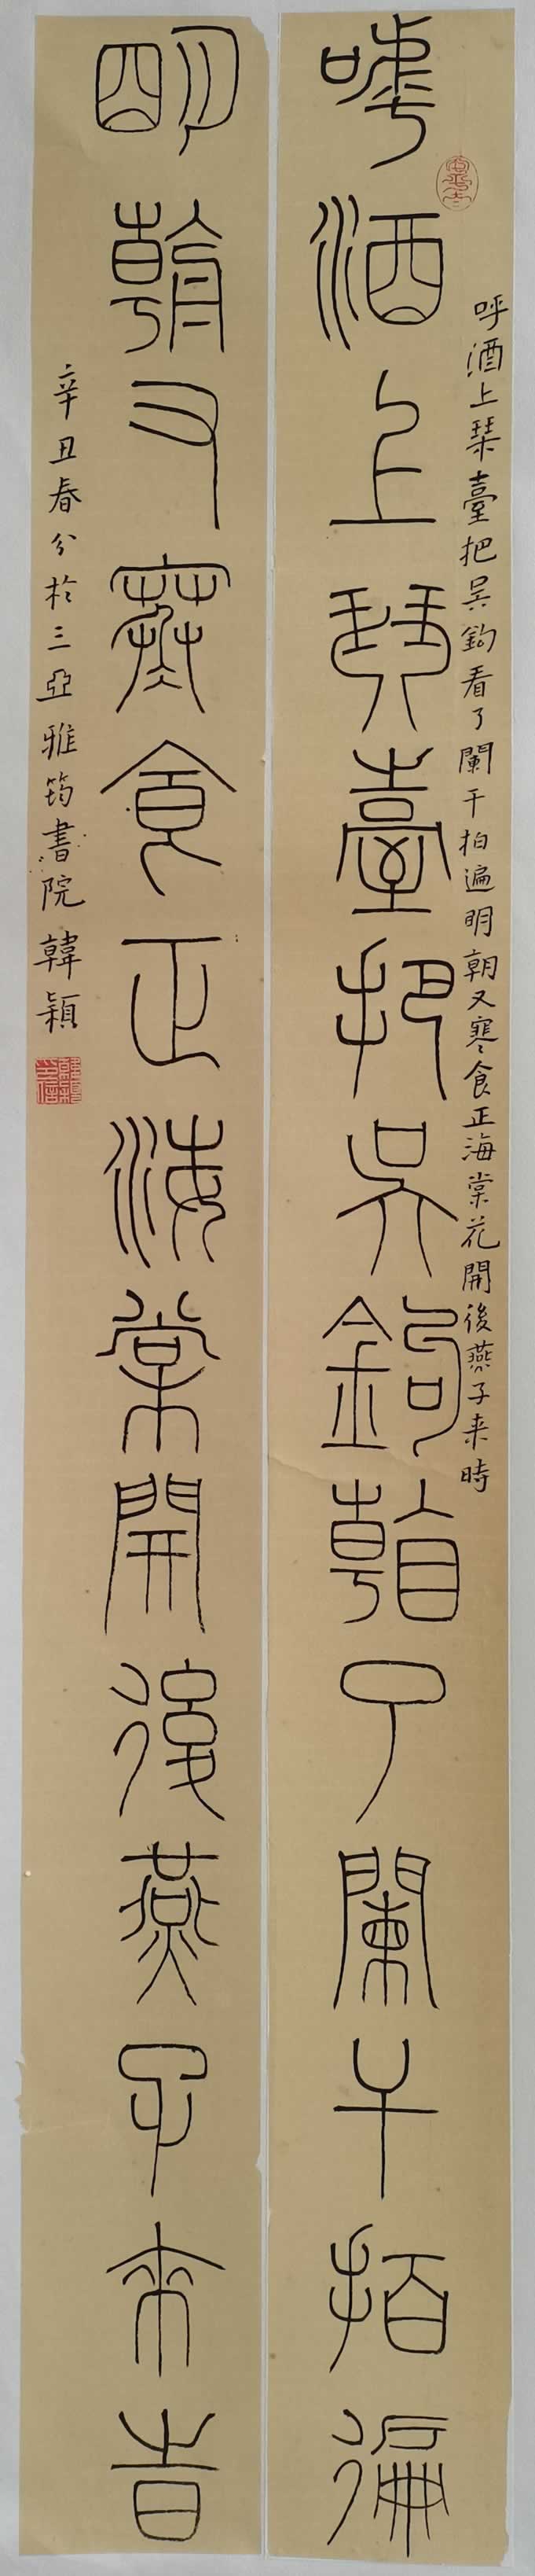 呼酒上琹臺把吴鈎看了闌干拍遍明朝又寒食正海棠花開後燕子来時
呼酒上琴臺把吴鉤看了闌干拍徧
明朝又寒食正海棠開後燕子來時
辛丑春分於三亞雅筠書院韓穎